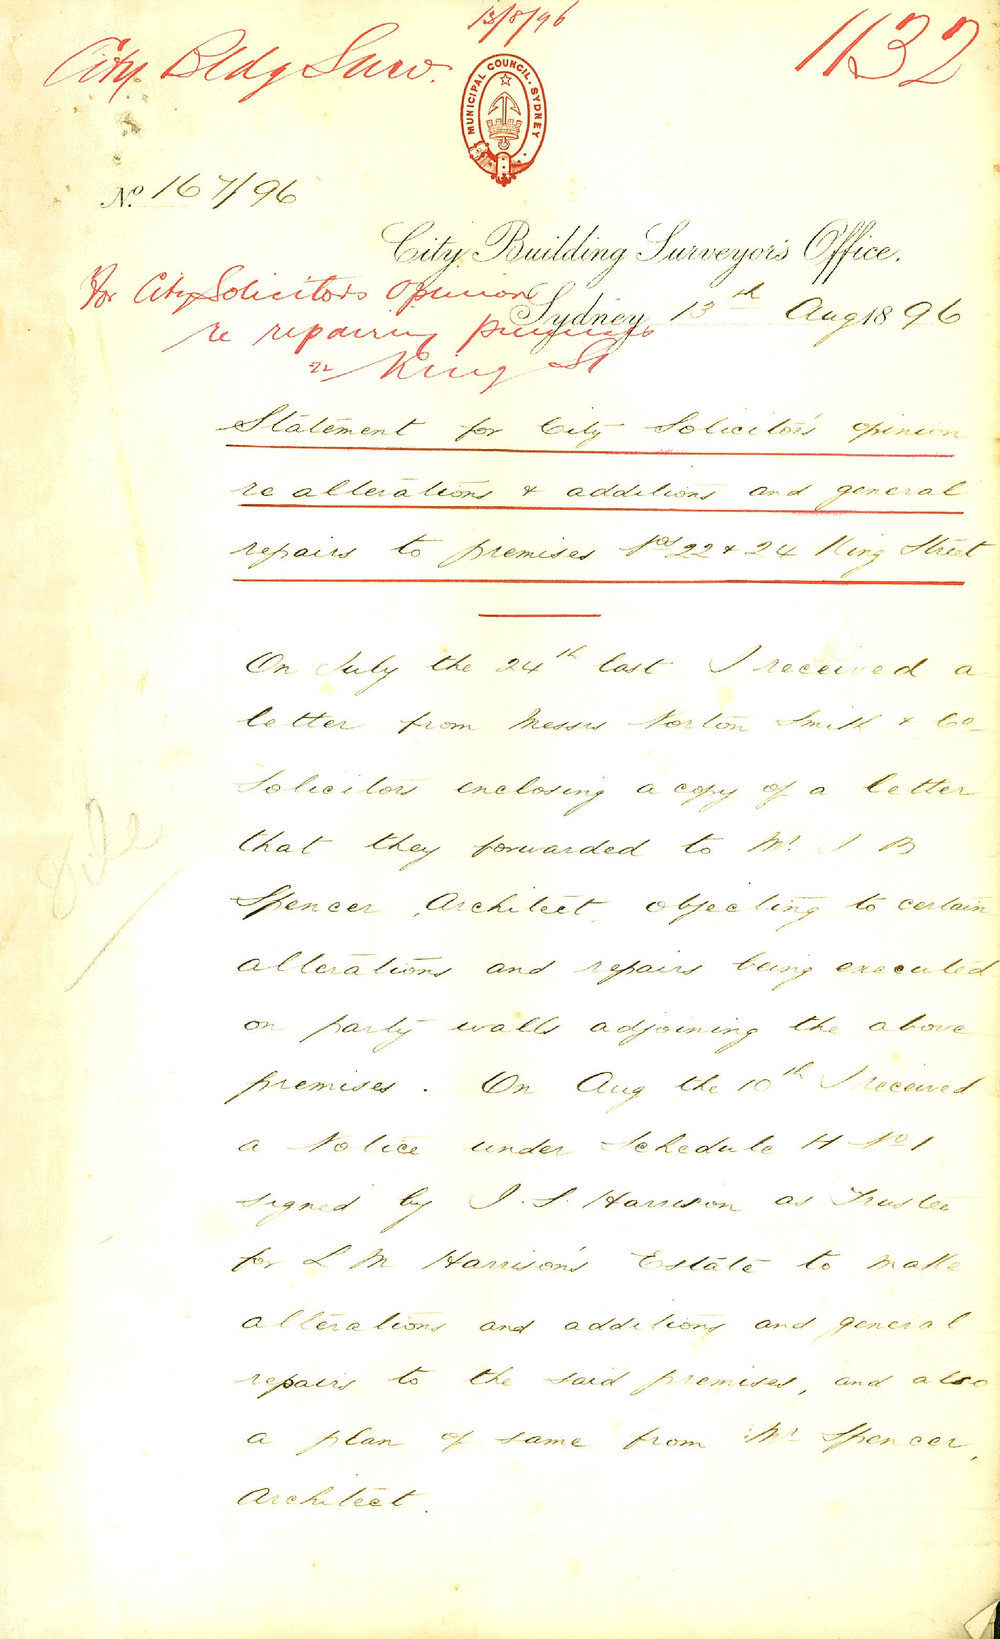 13/8/96
1132
City Bldg Surv.
MUNICIPAL COUNCIL. SYDNEY
No. 167/96
City Building Surveyor's Office.
For City Solicitors Opinion
Sydney 13th Aug 1896
re repairing premises
in King St
Statement for City Solicitor's opinion
re alterations & additions and general
repairs to premises Nos 22 & 24 King Street
On July the 24th last I received a
letter from Messrs Norton Smith & Co
Solicitors enclosing a copy of a letter
that they forwarded to Mr J B
Spencer, Architect, objecting to certain
alterations and repairs being executed
on party walls adjoining the above
premises. On Aug the 10th I received
a Notice under Schedule H No 1
signed by J. S. Harrison as Trustee
for L M Harrison's Estate to make
alterations and additions and general
repairs to the said premises, and also
a plan of same from Mr Spencer,
Architect.